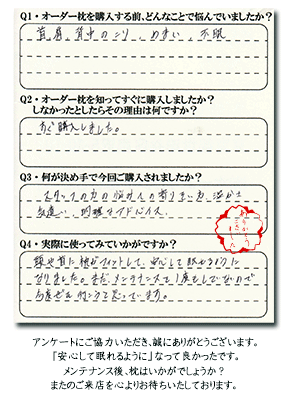 Q1・オーダー枕を購入する前、どんなことで悩んでいましたか?
首、肩、背中のこり、めまい、不眠
Q2・オーダー枕を知ってすぐに購入しましたか?
しなかったとしたらその理由は何ですか?
すぐ購入しました。
Q3・何が決め手で今回ご購入されましたか?
スタッフの方の悩みへの寄りそい方、温かな
気遣い、的確なアドバイス
ありがとうございました
Q4・実際に使ってみていかがですか?
頭や首に枕がフィットして、安心して眠れるように
なりました。まだ、メンテナンスで1度もしていないので
アンケートにご協力いただき、誠にありがとうございます。
「安心して眠れるように」なって良かったです。
メンテナンス後、枕はいかがでしょうか?
またのご来店を心よりお待ちいたしております。